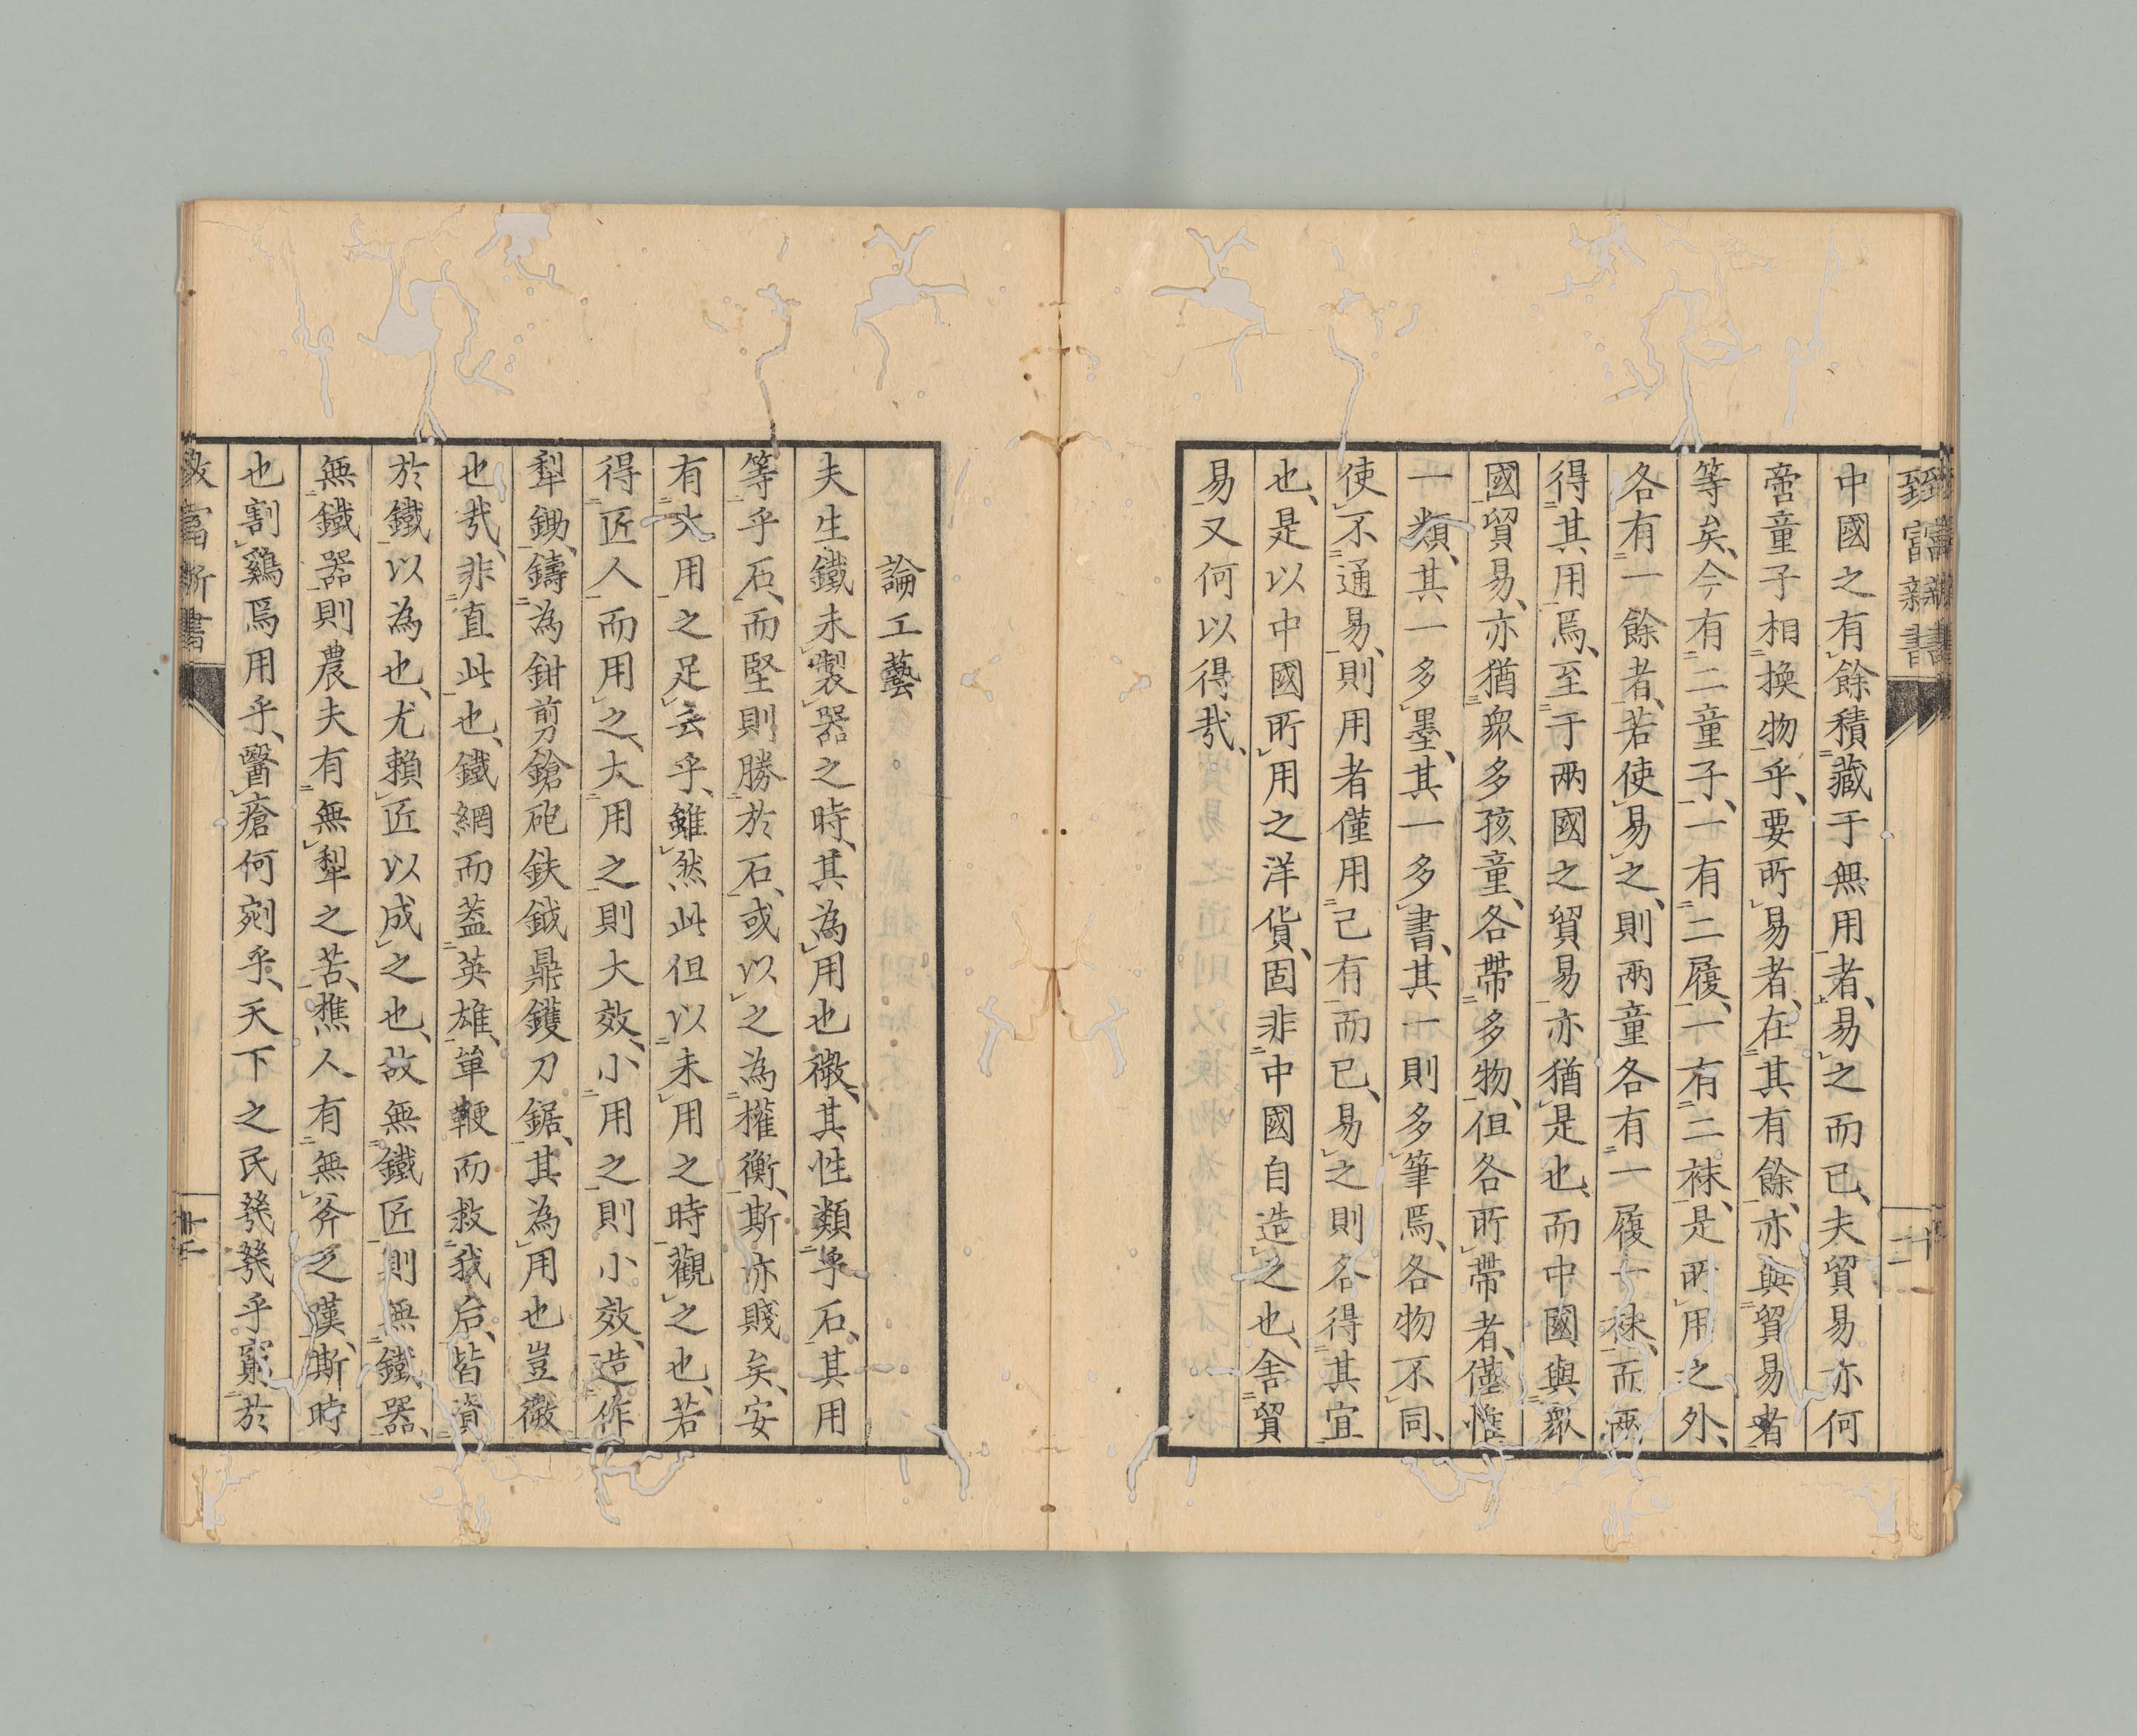 致富新書
十二
中國之有餘積藏于無用者、易之而已、夫貿易亦何
啻童子相換物乎、要所易者、在其有餘、亦與貿易者
等矣、今有二童子、一有二履、一有二襪、是所用之外、
各有一餘者、若使易之、則兩童各有一履一襪、而兩
得其用焉、至于兩國之貿易亦猶是也、而中國與眾
國貿易、亦猶眾多孩童、各帶多物、但各所帶者、僅惟
一類、其一多墨、其一多書、其一則多筆焉、各物不同、
使不通易、則用者僅用己有而已、易之則各得其宜
也、是以中國所用之洋貨、固非中國自造之也、舍貿
易又何以得哉、
論工藝
夫生鐵未製器之時、其為用也微、其性類乎石、其用
等乎石、而堅則勝於石、或以之為權衡、斯亦賤矣、安
有大用之足云乎、雖然此但以未用之時觀之也、若
得匠人而用之、大用之則大效、小用之則小效、造作
犁鋤、鑄為鉗剪鎗砲鈇鉞鼎鑊刀鋸、其為用也豈微
也哉、非直此也、鐵網而蓋英雄、單鞭而救我后、皆資
於鐵以為也、尤賴匠以成之也、故無鐵匠則無鐵器、
無鐵器則農夫有無犁之苦、樵人有無斧之嘆、斯時
也割鷄焉用乎、醫瘡何剜乎、天下之民㷀㷀乎窮於
致富新書
十二